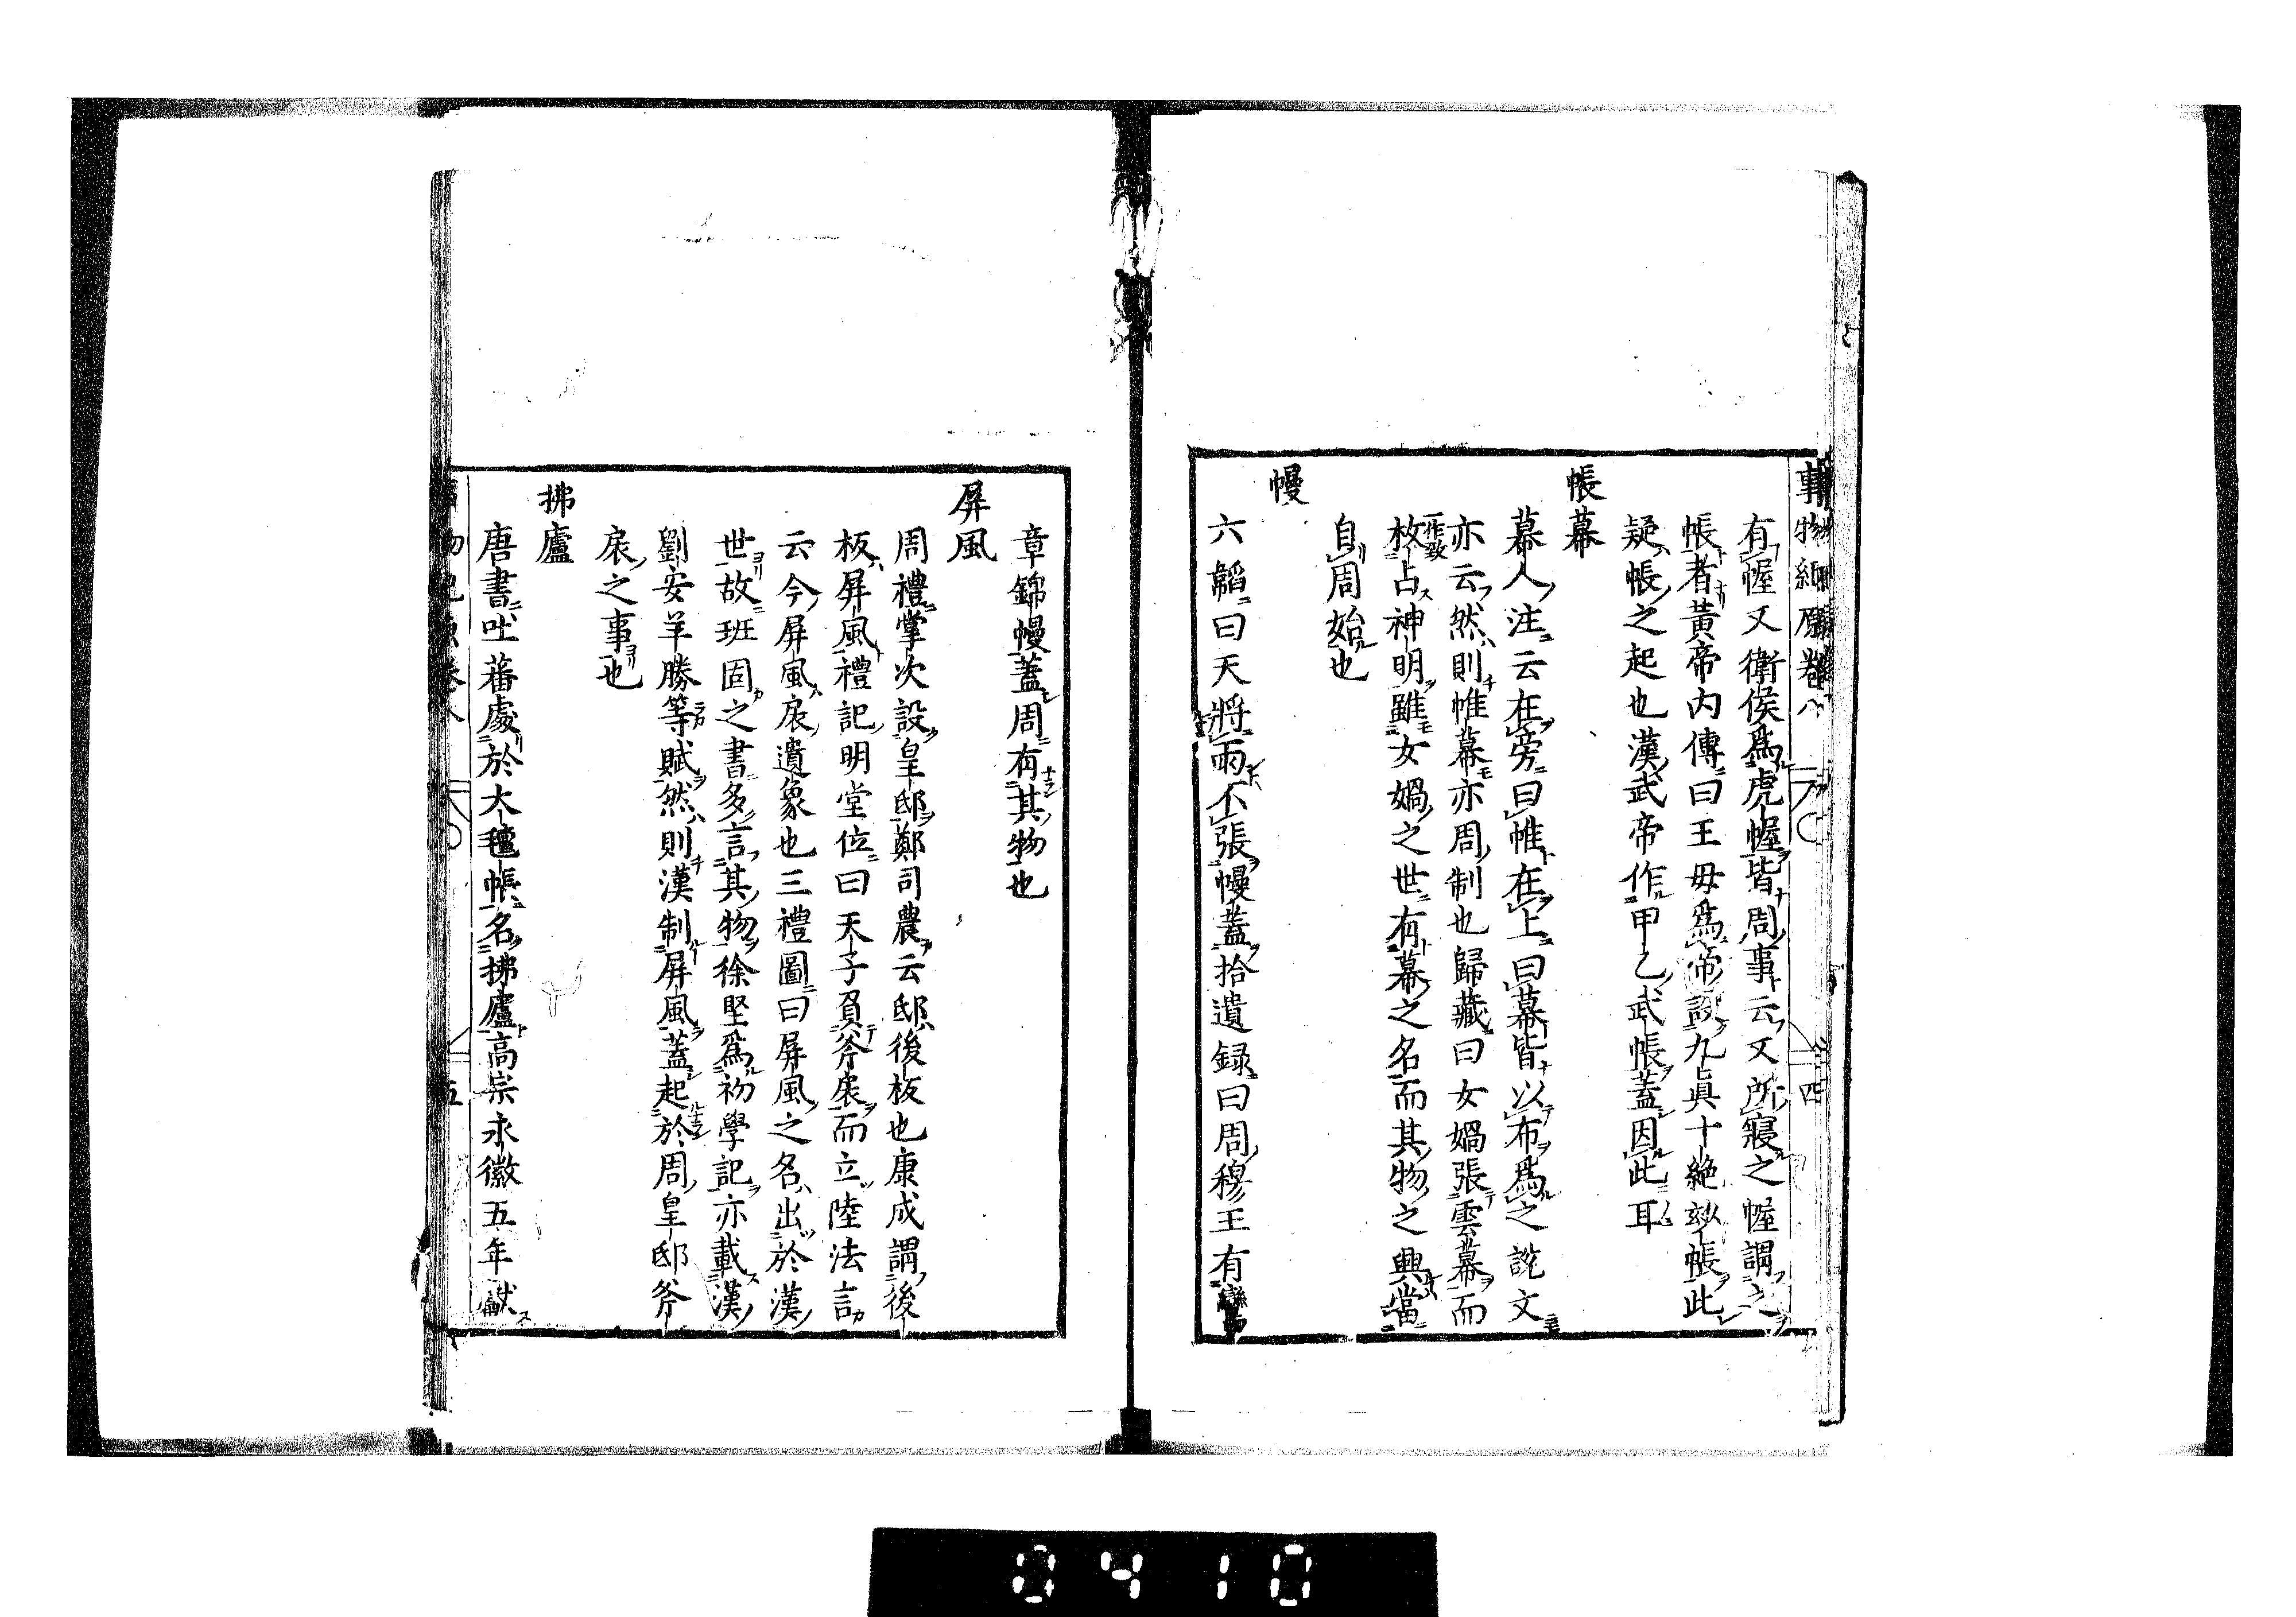 事物紀原卷八 四
有幄又衛侯爲虎幄皆周事云又所寢之幄謂之
帳者黃帝內傳曰王母爲帝設九眞十絶玅帳此
疑帳之起也漢武帝作甲乙武帳蓋因此耳
帳幕
幕人注云在旁曰帷在上曰幕皆以布爲之說文
亦云然則帷幕亦周制也歸藏曰女媧張雲幕而
枚一作致占神明雖女媧之世有幕之名而其物之興當
自周始也
幔
六韜曰天將雨不張幔蓋拾遺録曰周穆王有鸞
章錦幔蓋周有其物也
屏風
周禮掌次設皇邸鄭司農云邸後板也康成謂後
板屏風禮記明堂位曰天子負斧扆而立陸法言
云今屏風扆遺象也三禮圖曰屏風之名出於漢
世故班固之書多言其物徐堅爲初學記亦載漢
劉安羊勝等賦然則漢制屏風蓋起於周皇邸斧
扆之事也
拂廬
唐書吐蕃處於大氊帳名拂廬高宗永徽五年獻
五
0410